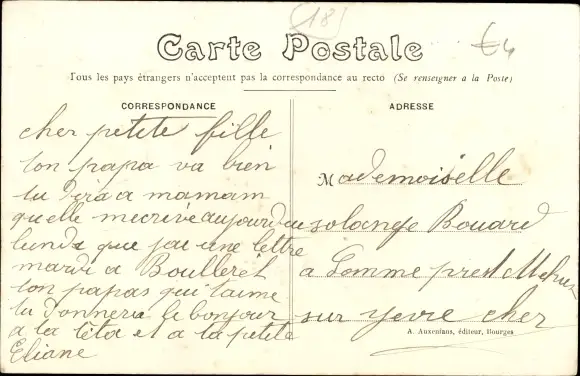 18
€4
Carte Postale
Tous les pays étrangers n'acceptent pas la correspondance au recto (Se renseigner à la Poste)
CORRESPONDANCE
cher petite fille
ton papa va bien
tu dira a mamam
quelle mecrive aujourdau
lundi que jai une lettre
mardi a Boulleret
ton papas qui taime
tu donnera le bonjour
a la tèta et a la petite
Eliane
ADRESSE
Mademoiselle
solange Bouard
a Somme prest Mehun
sur yevre cher
A. Auxenfans, éditeur, Bourges